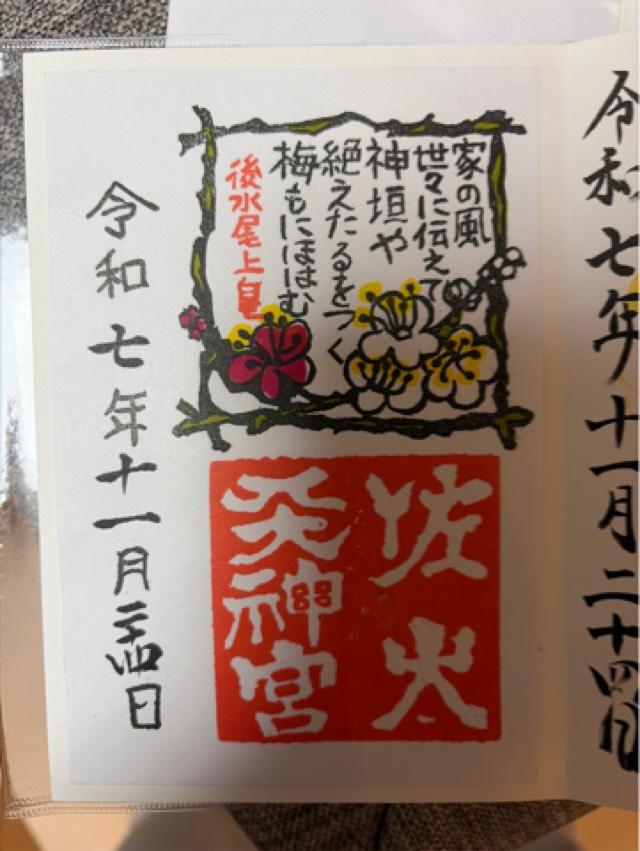 令和七年十一月二十四日
家の風
世々に伝えて
神垣や
絶えたるをつく
梅もにほはむ
後水尾上皇
佐太
天神宮
令和七年十一月二十四日